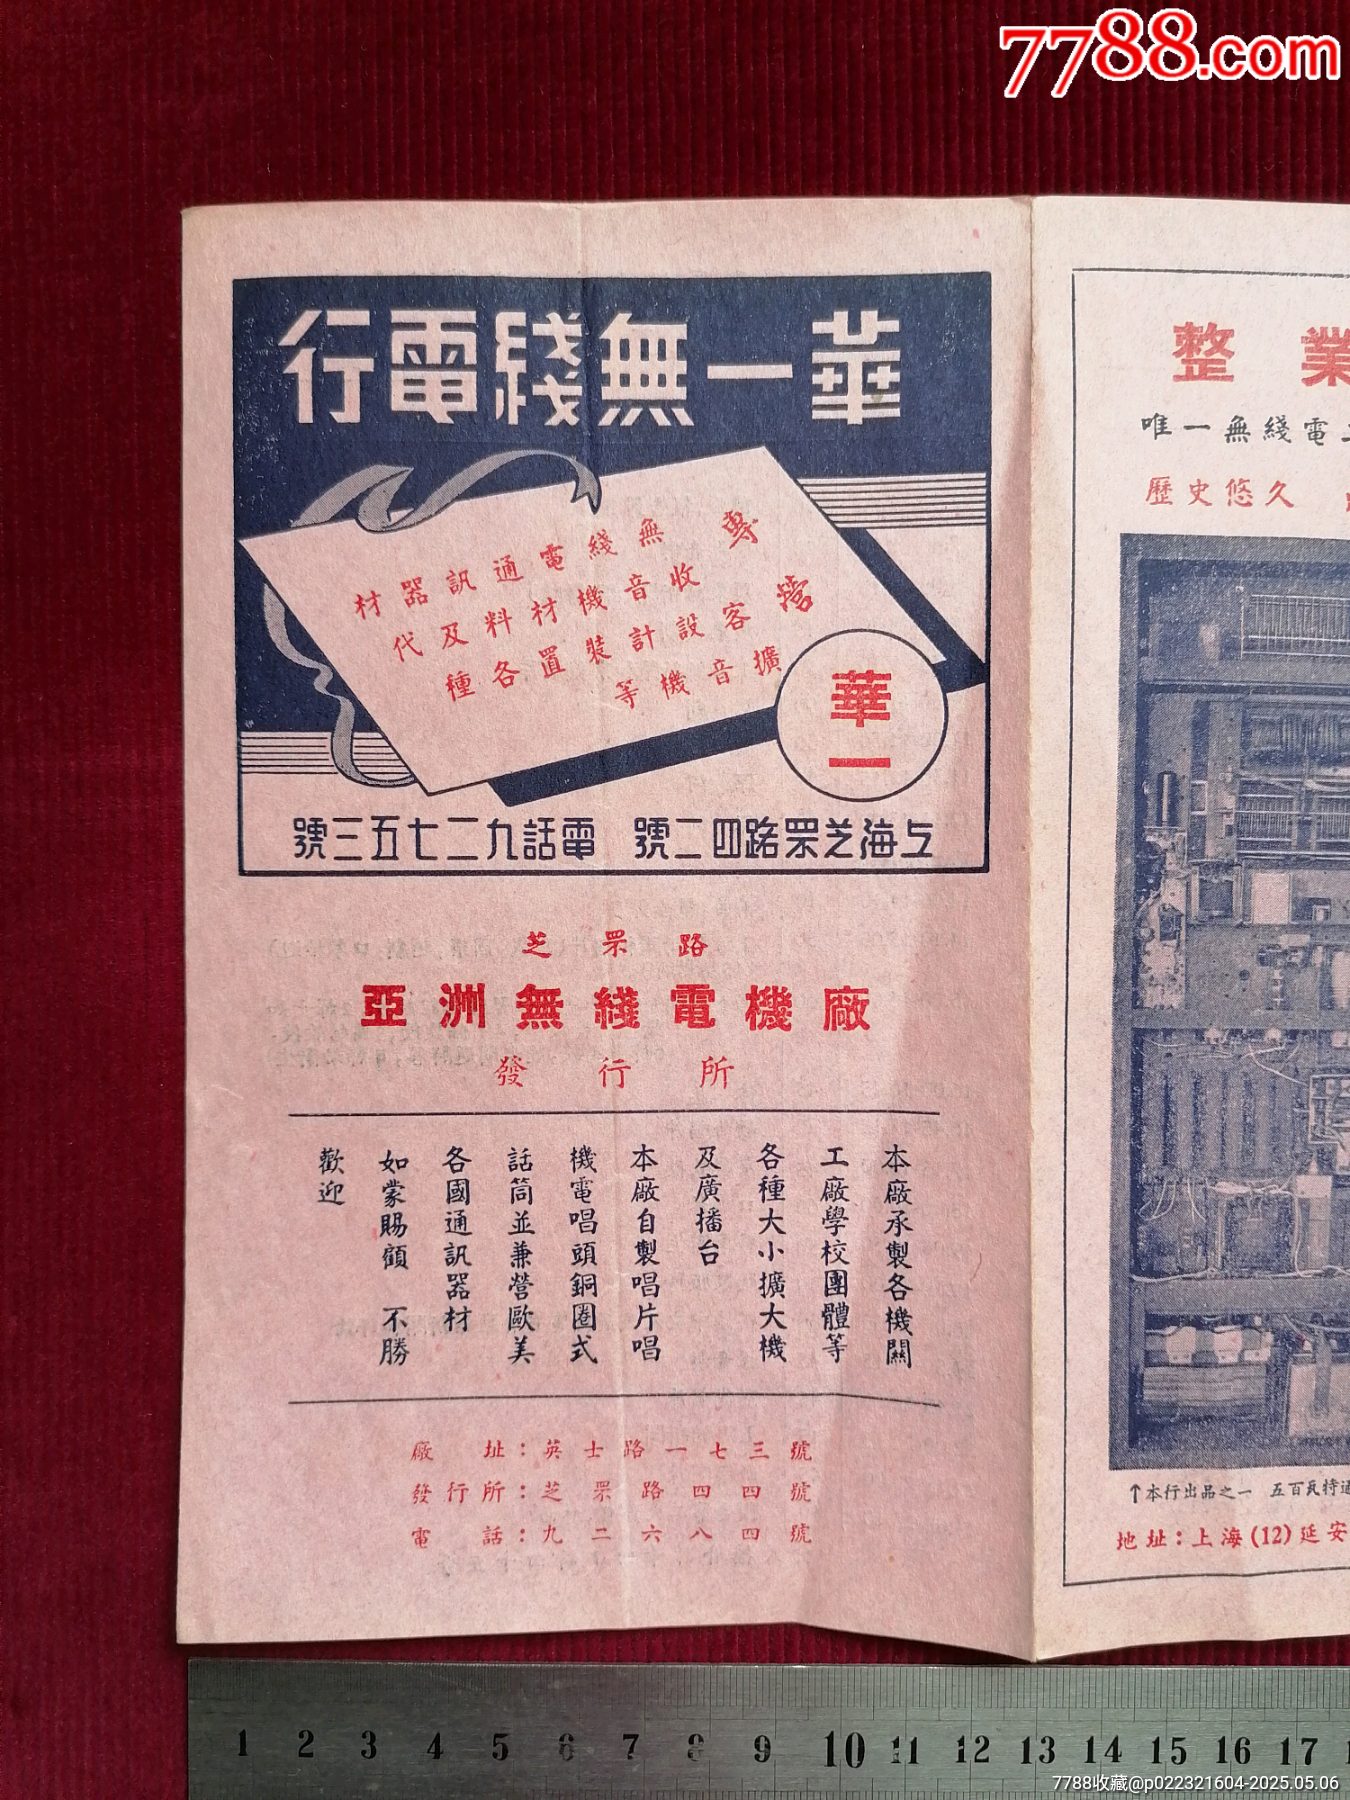 7788.com
華一無綫電行
專營
無綫電通訊器材
收音機材料及代
客設計裝置各種
擴音機等
華一
上海芝罘路四二號 電話九二七五三號
芝罘路
亞洲無綫電機廠
發行所
本廠承製各機關
工廠學校團體等
各種大小擴大機
及廣播台
本廠自製唱片唱
機電唱頭銅圈式
話筒並兼營歐美
各國通訊器材
如蒙賜顧 不勝
歡迎
廠址：英士路一七三號
發行所：芝罘路四四號
電話：九二六八四號
整業
唯一無綫電
歷史悠久
↑本行出品之一 五百瓦特通
地址：上海(12)延安
1 2 3 4 5 6 7 8 9 10 11 12 13 14 15 16 17
7788收藏@p022321604-2025.05.06